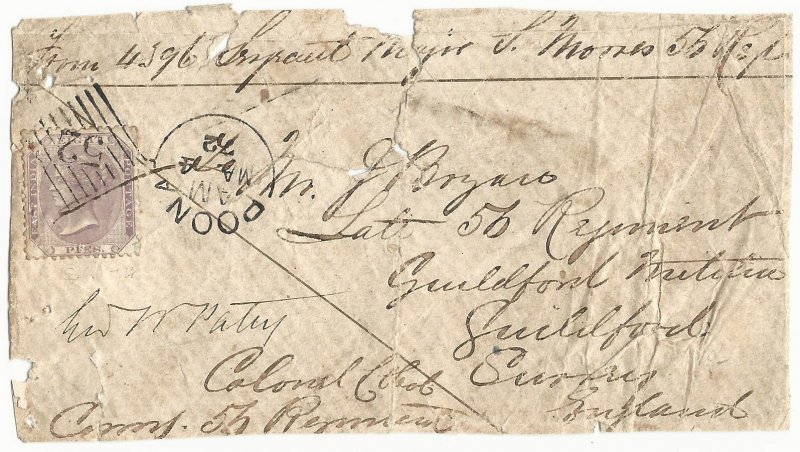 From 4396 Serjeant Major S. Morres 56 Regt
52
POONA
AM
MA 2
72
EAST INDIA POSTAGE
PIES.
Mr. J Bryars
Late 56 Regiment
Guildford Militia
Guildford
Surrey
England
Geo W Patey
Colonel
Comg. 56 Regiment